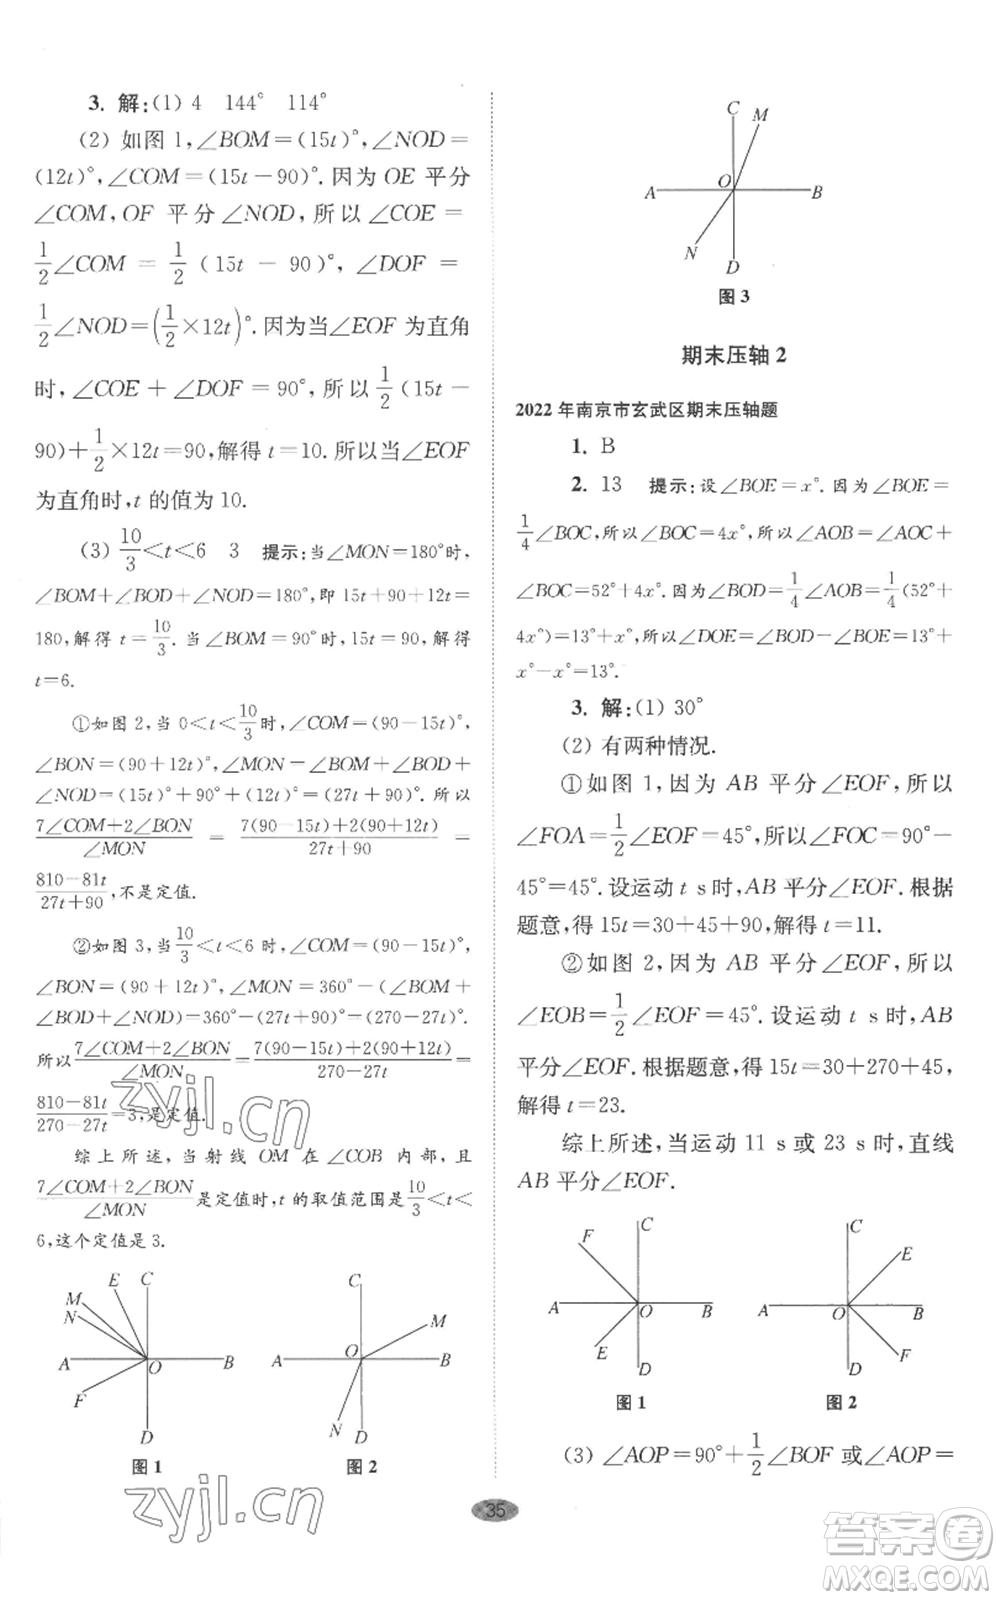 3. 解:(1) 4　144°　114°
(2) 如图 1,∠BOM=(15t)°,∠NOD=
(12t)°,∠COM=(15t-90)°.因为 OE 平分
∠COM, OF 平分∠NOD, 所以∠COE=
1/2∠COM = 1/2 (15t - 90)°, ∠DOF =
1/2∠NOD=(1/2×12t)°.因为当∠EOF 为直角
时,∠COE+∠DOF=90°,所以1/2(15t-
90)+1/2×12t=90,解得 t=10.所以当∠EOF
为直角时,t 的值为 10.
(3) 10/3<t<6　3　提示:当∠MON=180°时,
∠BOM+∠BOD+∠NOD=180°,即 15t+90+12t=
180,解得 t=10/3.当∠BOM=90°时,15t=90,解得
t=6.
①如图 2,当 0<t<10/3时,∠COM=(90-15t)°,
∠BON=(90+12t)°,∠MON=∠BOM+∠BOD+
∠NOD=(15t)°+90°+(12t)°=(27t+90)°.所以
(7∠COM+2∠BON)/∠MON = (7(90-15t)+2(90+12t))/(27t+90) =
(810-81t)/(27t+90),不是定值.
②如图 3,当10/3<t<6 时,∠COM=(90-15t)°,
∠BON=(90+12t)°,∠MON=360°-(∠BOM+
∠BOD+∠NOD)=360°-(27t+90)°=(270-27t)°.
所以(7∠COM+2∠BON)/∠MON=(7(90-15t)+2(90+12t))/(270-27t)=
(810-81t)/(270-27t)=3,是定值.
综上所述,当射线 OM 在∠COB 内部,且
(7∠COM+2∠BON)/∠MON是定值时,t 的取值范围是10/3<t<
6,这个定值是 3.
C
E
M
N
O
A
B
F
D
图 1
C
M
O
A
B
N
D
图 2
C
M
O
A
B
N
D
图 3
期末压轴 2
2022 年南京市玄武区期末压轴题
1. B
2. 13　提示:设∠BOE=x°.因为∠BOE=
1/4∠BOC,所以∠BOC=4x°,所以∠AOB=∠AOC+
∠BOC=52°+4x°.因为∠BOD=1/4∠AOB=1/4(52°+
4x°)=13°+x°,所以∠DOE=∠BOD-∠BOE=13°+
x°-x°=13°.
3. 解:(1) 30°
(2) 有两种情况.
①如图 1,因为 AB 平分∠EOF,所以
∠FOA=1/2∠EOF=45°,所以∠FOC=90°-
45°=45°.设运动 t s时,AB 平分∠EOF.根据
题意,得 15t=30+45+90,解得 t=11.
②如图 2,因为 AB 平分∠EOF,所以
∠EOB=1/2∠EOF=45°.设运动 t s时,AB
平分∠EOF.根据题意,得 15t=30+270+45,
解得 t=23.
综上所述,当运动 11 s或 23 s时,直线
AB 平分∠EOF.
C
F
A
O
B
E
D
图 1
C
E
A
O
B
F
D
图 2
(3) ∠AOP=90°+1/2∠BOF 或∠AOP=
35
zyjl.cn
zyjl.cn
答案卷
MXQE.COM